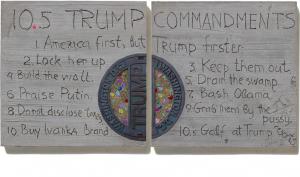 10.5 TRUMP COMMANDMENTS
1. America first, But Trump firster
2. Lock her up
3. Keep them out
4. Build the wall
5. Drain the swamp
6. Praise Putin
7. Bash Obama
8. Do not disclose
9. Grab them By the pussy
10. Buy Ivanka Brand
10.5 Golf at Trump
TRUMP